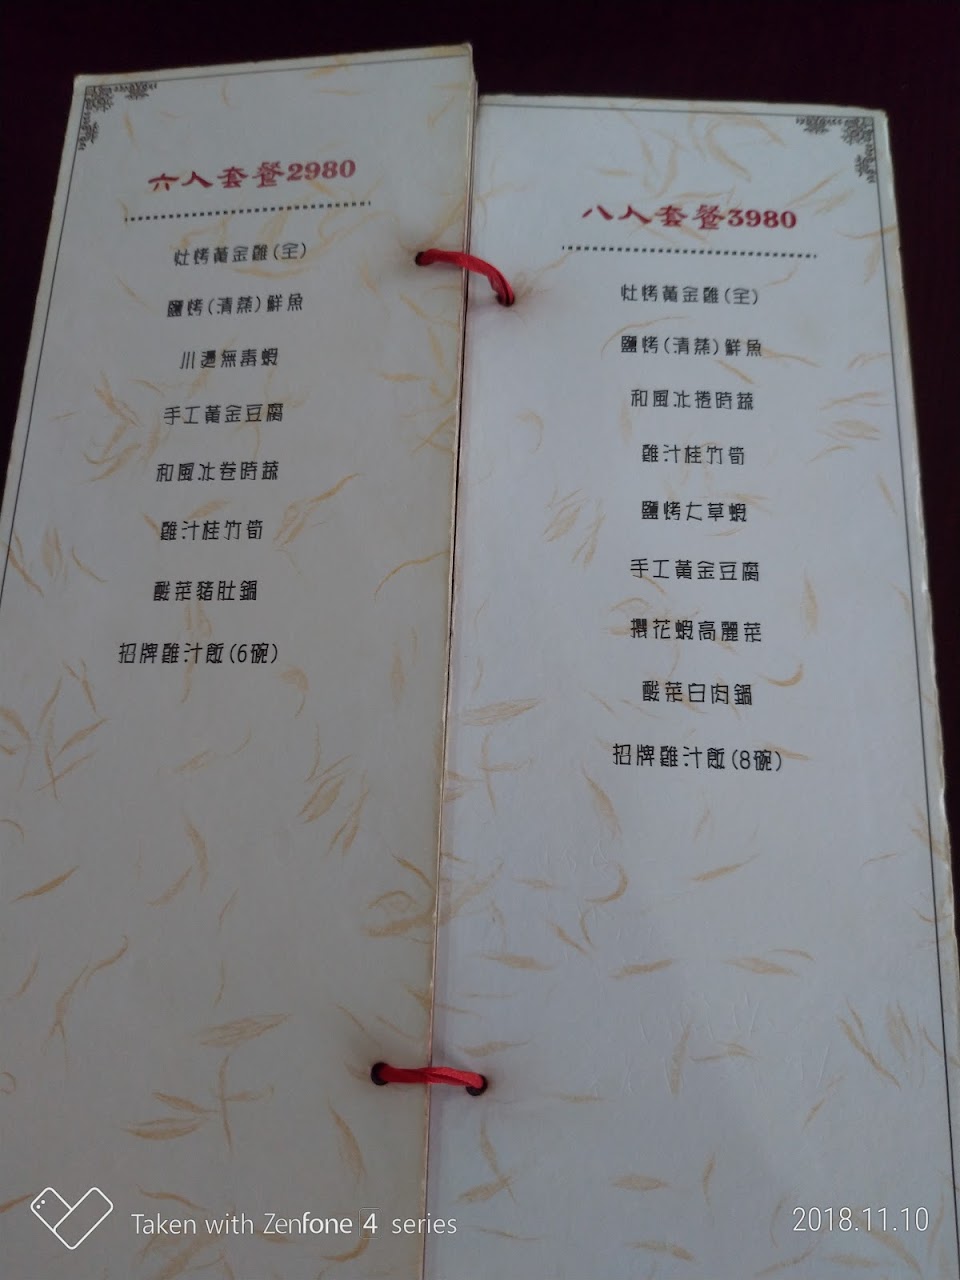 六人套餐2980
灶烤黃金雞(全)
鹽烤(清蒸)鮮魚
川燙無毒蝦
手工黃金豆腐
和風冰卷時蔬
雞汁桂竹筍
酸菜豬肚鍋
招牌雞汁飯(6碗)
八人套餐3980
灶烤黃金雞(全)
鹽烤(清蒸)鮮魚
和風冰捲時蔬
雞汁桂竹筍
鹽烤大草蝦
手工黃金豆腐
櫻花蝦高麗菜
酸菜白肉鍋
招牌雞汁飯(8碗)
Taken with Zenfone 4 series
2018.11.10